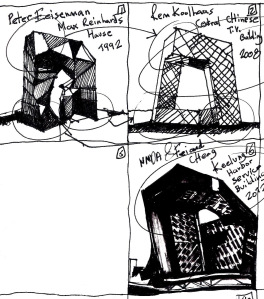 Peter Eisenman
Max Reinhards
Hause
1992
1
Rem Koolhaus
Central Chinese
T.V.
Building
2008
2
5
NMDA &
Cheng
Keelung
Harbor
service
Building
6